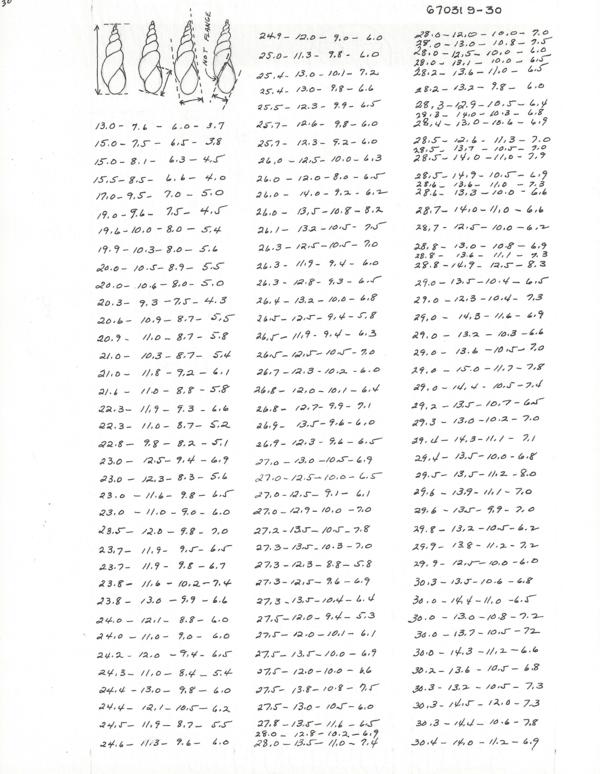 30
670319-30
NOT FLANGE
13.0 - 7.6 - 6.0 - 3.7
15.0 - 7.5 - 6.5 - 3.8
15.0 - 8.1 - 6.3 - 4.5
15.5 - 8.5 - 6.6 - 4.0
17.0 - 9.5 - 7.0 - 5.0
19.0 - 9.6 - 7.5 - 4.5
19.6 - 10.0 - 8.0 - 5.4
19.9 - 10.3 - 8.0 - 5.6
20.0 - 10.5 - 8.9 - 5.5
20.0 - 10.6 - 8.0 - 5.0
20.3 - 9.3 - 7.5 - 4.3
20.6 - 10.9 - 8.7 - 5.5
20.9 - 11.0 - 8.7 - 5.8
21.0 - 10.3 - 8.7 - 5.4
21.0 - 11.8 - 9.2 - 6.1
21.6 - 11.0 - 8.8 - 5.8
22.3 - 11.9 - 9.3 - 6.6
22.3 - 11.0 - 8.7 - 5.2
22.8 - 9.8 - 8.2 - 5.1
23.0 - 12.5 - 9.4 - 6.9
23.0 - 12.3 - 8.3 - 5.6
23.0 - 11.6 - 9.8 - 6.5
23.0 - 11.0 - 9.0 - 6.0
23.5 - 12.0 - 9.8 - 7.0
23.7 - 11.9 - 9.5 - 6.5
23.7 - 11.9 - 9.8 - 6.7
23.8 - 11.6 - 10.2 - 7.4
23.8 - 13.0 - 9.9 - 6.6
24.0 - 12.1 - 8.8 - 6.0
24.0 - 11.0 - 9.0 - 6.0
24.2 - 12.0 - 9.4 - 6.5
24.3 - 11.0 - 8.4 - 5.4
24.4 - 13.0 - 9.8 - 6.0
24.4 - 12.1 - 10.5 - 6.2
24.5 - 11.9 - 8.7 - 5.5
24.6 - 11.3 - 9.6 - 6.0
24.9 - 12.0 - 9.0 - 6.0
25.0 - 11.3 - 9.8 - 6.0
25.4 - 13.0 - 10.1 - 7.2
25.4 - 13.0 - 9.8 - 6.6
25.5 - 12.3 - 9.9 - 6.5
25.7 - 12.6 - 9.8 - 6.0
25.7 - 12.3 - 9.2 - 6.0
26.0 - 12.5 - 10.0 - 6.3
26.0 - 12.0 - 8.0 - 6.5
26.0 - 14.0 - 9.2 - 6.2
26.0 - 13.5 - 10.8 - 8.2
26.1 - 13.2 - 10.5 - 7.5
26.3 - 12.5 - 10.5 - 7.0
26.3 - 11.9 - 9.4 - 6.0
26.3 - 12.8 - 9.3 - 6.5
26.4 - 13.2 - 10.0 - 6.8
26.5 - 12.5 - 9.4 - 5.8
26.5 - 11.9 - 9.4 - 6.3
26.5 - 12.5 - 10.5 - 7.0
26.7 - 12.3 - 10.2 - 6.0
26.8 - 12.0 - 10.1 - 6.4
26.8 - 12.7 - 9.9 - 7.1
26.9 - 13.5 - 9.6 - 6.0
26.9 - 12.3 - 9.6 - 6.5
27.0 - 13.0 - 10.5 - 6.9
27.0 - 12.5 - 10.0 - 6.5
27.0 - 12.5 - 9.1 - 6.1
27.0 - 12.9 - 10.0 - 7.0
27.2 - 13.5 - 10.5 - 7.8
27.3 - 13.5 - 10.3 - 7.0
27.3 - 12.3 - 8.8 - 5.8
27.3 - 12.5 - 9.6 - 6.9
27.3 - 13.5 - 10.4 - 6.4
27.5 - 12.0 - 9.4 - 5.3
27.5 - 12.0 - 10.1 - 6.1
27.5 - 13.5 - 10.0 - 6.9
27.5 - 12.0 - 10.0 - 6.6
27.5 - 13.8 - 10.8 - 7.5
27.5 - 13.0 - 10.5 - 6.0
27.8 - 13.5 - 11.6 - 6.5
28.0 - 12.8 - 10.2 - 6.9
28.0 - 13.5 - 11.0 - 7.4
28.0 - 12.0 - 10.0 - 7.0
28.0 - 13.0 - 10.8 - 7.5
28.0 - 12.5 - 10.0 - 6.0
28.0 - 13.1 - 10.0 - 6.5
28.2 - 13.6 - 11.0 - 6.5
28.2 - 13.2 - 9.8 - 6.0
28.3 - 12.9 - 10.5 - 6.4
28.3 - 14.0 - 10.3 - 6.8
28.4 - 13.0 - 10.6 - 6.9
28.5 - 12.6 - 11.3 - 7.0
28.5 - 13.7 - 10.5 - 7.0
28.5 - 14.0 - 11.0 - 7.9
28.5 - 14.9 - 10.5 - 6.9
28.6 - 13.6 - 11.0 - 7.3
28.6 - 13.3 - 10.0 - 6.6
28.7 - 14.0 - 11.0 - 6.6
28.7 - 12.5 - 10.0 - 6.2
28.8 - 13.0 - 10.8 - 6.9
28.8 - 13.6 - 11.1 - 7.3
28.8 - 14.9 - 12.5 - 8.3
29.0 - 13.5 - 10.4 - 6.5
29.0 - 12.3 - 10.4 - 7.3
29.0 - 14.3 - 11.6 - 6.9
29.0 - 13.2 - 10.3 - 6.6
29.0 - 13.6 - 10.5 - 7.0
29.0 - 15.0 - 11.7 - 7.8
29.0 - 14.4 - 10.5 - 7.4
29.2 - 13.5 - 10.7 - 6.5
29.3 - 13.0 - 10.2 - 7.0
29.4 - 14.3 - 11.1 - 7.1
29.4 - 13.5 - 10.0 - 6.8
29.5 - 13.5 - 11.2 - 8.0
29.6 - 13.9 - 11.1 - 7.0
29.6 - 13.5 - 9.9 - 7.0
29.8 - 13.2 - 10.5 - 6.2
29.9 - 13.8 - 11.2 - 7.2
29.9 - 12.5 - 10.0 - 6.0
30.3 - 13.5 - 10.6 - 6.8
30.0 - 14.4 - 11.0 - 6.5
30.0 - 13.0 - 10.8 - 7.2
30.0 - 13.7 - 10.5 - 72
30.0 - 14.3 - 11.2 - 6.6
30.2 - 13.6 - 10.5 - 6.8
30.3 - 13.2 - 10.5 - 7.3
30.3 - 14.5 - 12.0 - 7.3
30.3 - 14.4 - 10.6 - 7.8
30.4 - 14.0 - 11.2 - 6.9